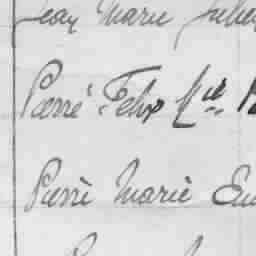 Jean Marie Julien
Pierré Felix M^ie
Pierrè Marie Em